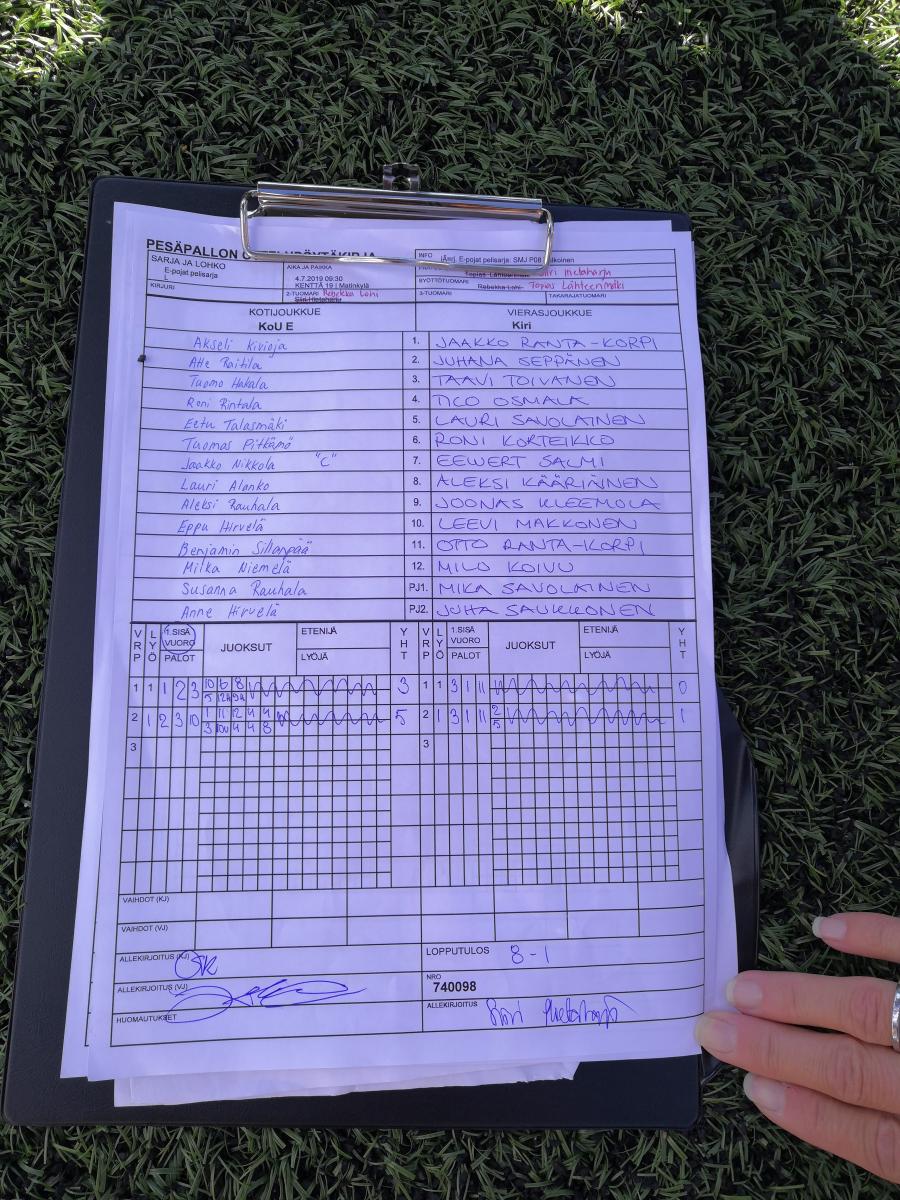 PESÄPALLON
INFO
E-pojat pelisarja: SMJ P08
SARJA JA LOHKO
E-pojat pelisarja
AIKA JA PAIKKA
4.7.2019 09:30
KENTTÄ 19 | Matinkylä
Siiri Hietaharju
SYÖTTÖTUOMARI Rebekka Lohi Topas Lähteenmäki
KIRJURI
2-TUOMARI Rebekka Lohi
Siiri Hietaharju
3-TUOMARI
TAKARAJATUOMARI
KOTIJOUKKUE
KoU E
VIERASJOUKKUE
Kiri
Akseli Kivioja 1. JAAKKO RANTA-KORPI
Atte Raitila 2. JUHANA SEPPÄNEN
Tuomo Hakala 3. TAAVI TOIVANEN
Roni Rintala 4. TICO OSMALA
Eetu Talasmäki 5. LAURI SAVOLAINEN
Tuomas Pitkämö 6. RONI KORTEIKKO
Jaakko Nikkola "C" 7. EEWERT SALMI
Lauri Alanko 8. ALEKSI KÄÄRIÄINEN
Aleksi Rauhala 9. JOONAS KLEEMOLA
Eppu Hirvelä 10. LEEVI MAKKONEN
Benjamin Sillanpää 11. OTTO RANTA-KORPI
Milka Niemelä 12. MILO KOIVU
Susanna Rauhala PJ1. MIKA SAVOLAINEN
Anne Hirvelä PJ2. JUHA SAUKKONEN
VRP LYÖ 1.SISÄ VUORO PALOT JUOKSUT ETENIJÄ LYÖJÄ YHT VRP LYÖ 1.SISÄ VUORO PALOT JUOKSUT ETENIJÄ LYÖJÄ YHT
1 1 1 2 3 10 6 8 3 1 1 3 1 11 0
5
2 1 2 3 10 1 11 12 4 4 5 2 1 3 1 11 2 1
3 10 4 4 8 5
3 3
VAIHDOT (KJ)
VAIHDOT (VJ)
ALLEKIRJOITUS (KJ)
LOPPUTULOS 8-1
ALLEKIRJOITUS (VJ)
NRO
740098
HUOMAUTUKSET
ALLEKIRJOITUS Siiri Hietaharju